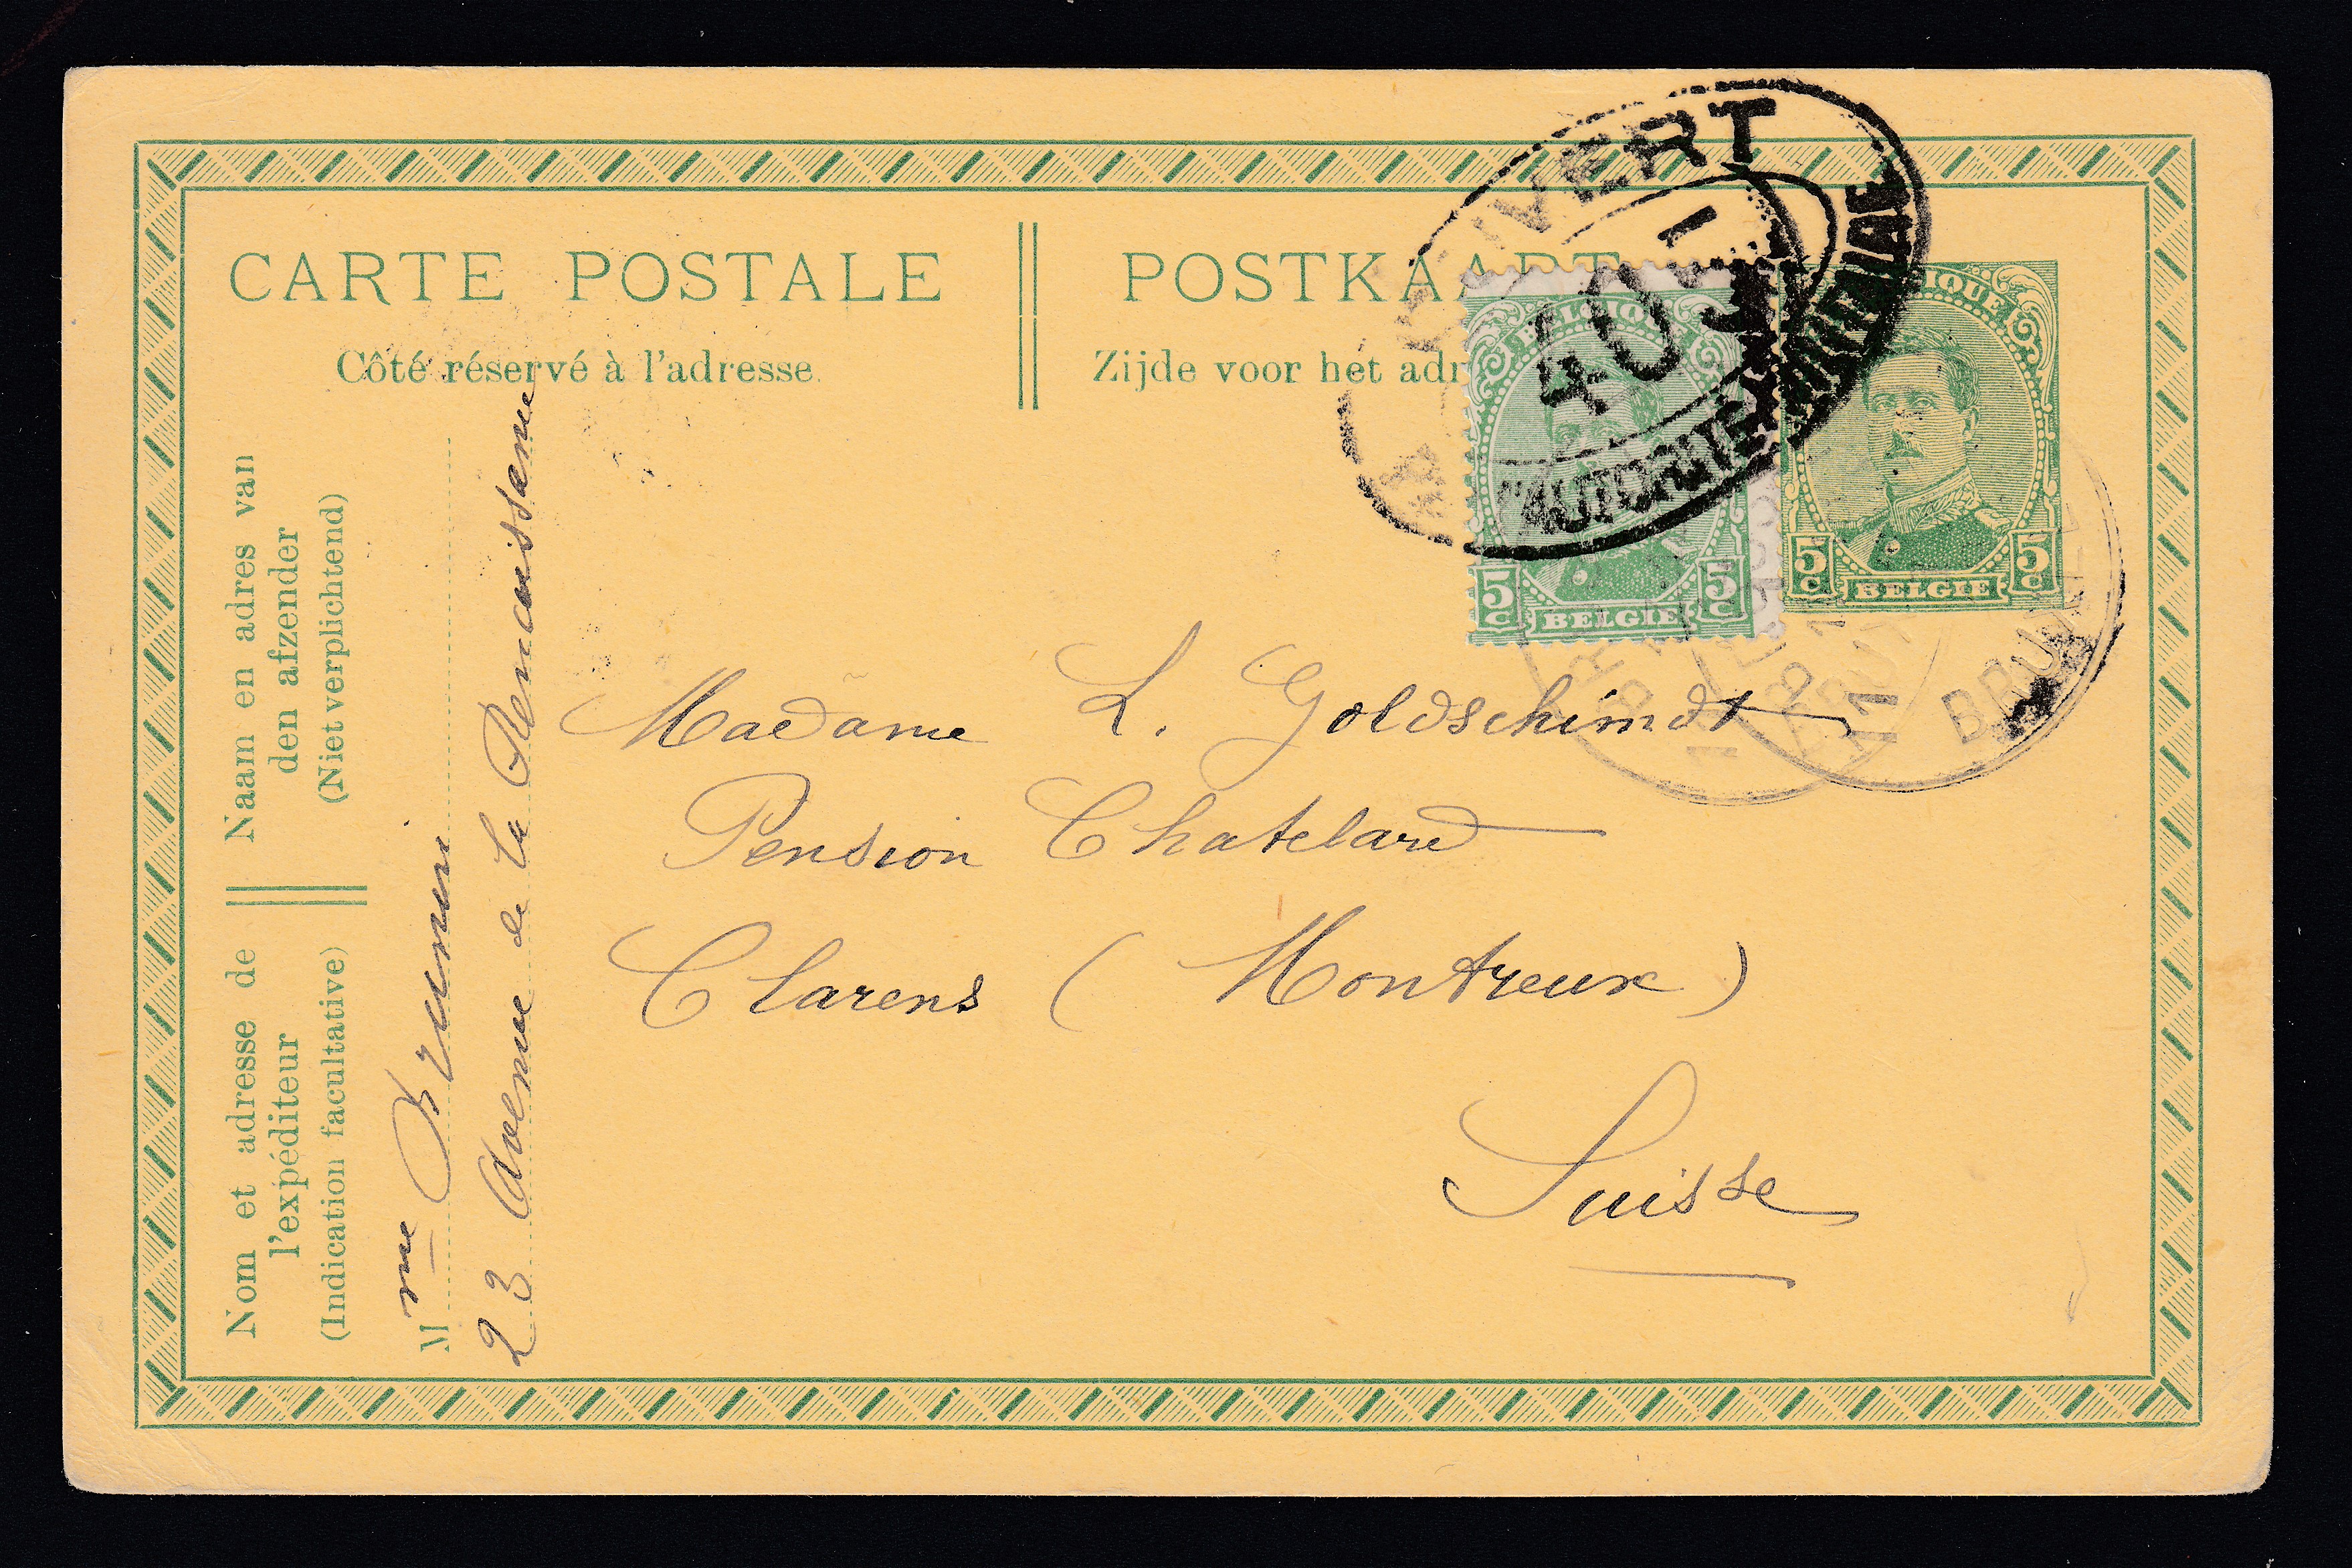 CARTE POSTALE
Côté réservé à l'adresse
POSTKAART
Zijde voor het adr
OUVERT
40
L'AUTORITÉ MILITAIRE
BELGIQUE
5c 5c
BELGIE
5c 5c
BELGIE
BRUXELLES
11
Madame L. Goldschimdt
Pension Chatelard
Clarens (Montreux)
Suisse
Naam en adres van
den afzender
(Niet verplichtend)
Nom et adresse de
l'expéditeur
(Indication facultative)
Mme
23 Avenue de la Renaissance